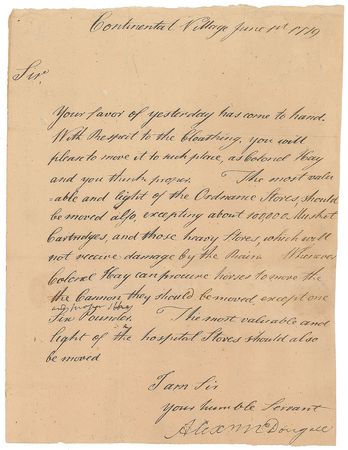 Continental Village June 1st 1779
Sir,
Your favor of yesterday has come to hand.
With Respect to the Cloathing, you will
please to move it to such place, as Colonel Hay
and you think proper. The most valu-
-able and light of the Ordnance Stores should
be moved also, excepting about 100,000 Musket
Cartridges, and those heavy Stores, which will
not receive damage by the Rain. Whenever
Colonel Hay can procure horses to move the
the Cannon they should be moved except one
Six Pounder. The most valuable and
light of the hospital Stores should also
be moved
I am Sir
Your humble Servant
Alexr McDougall